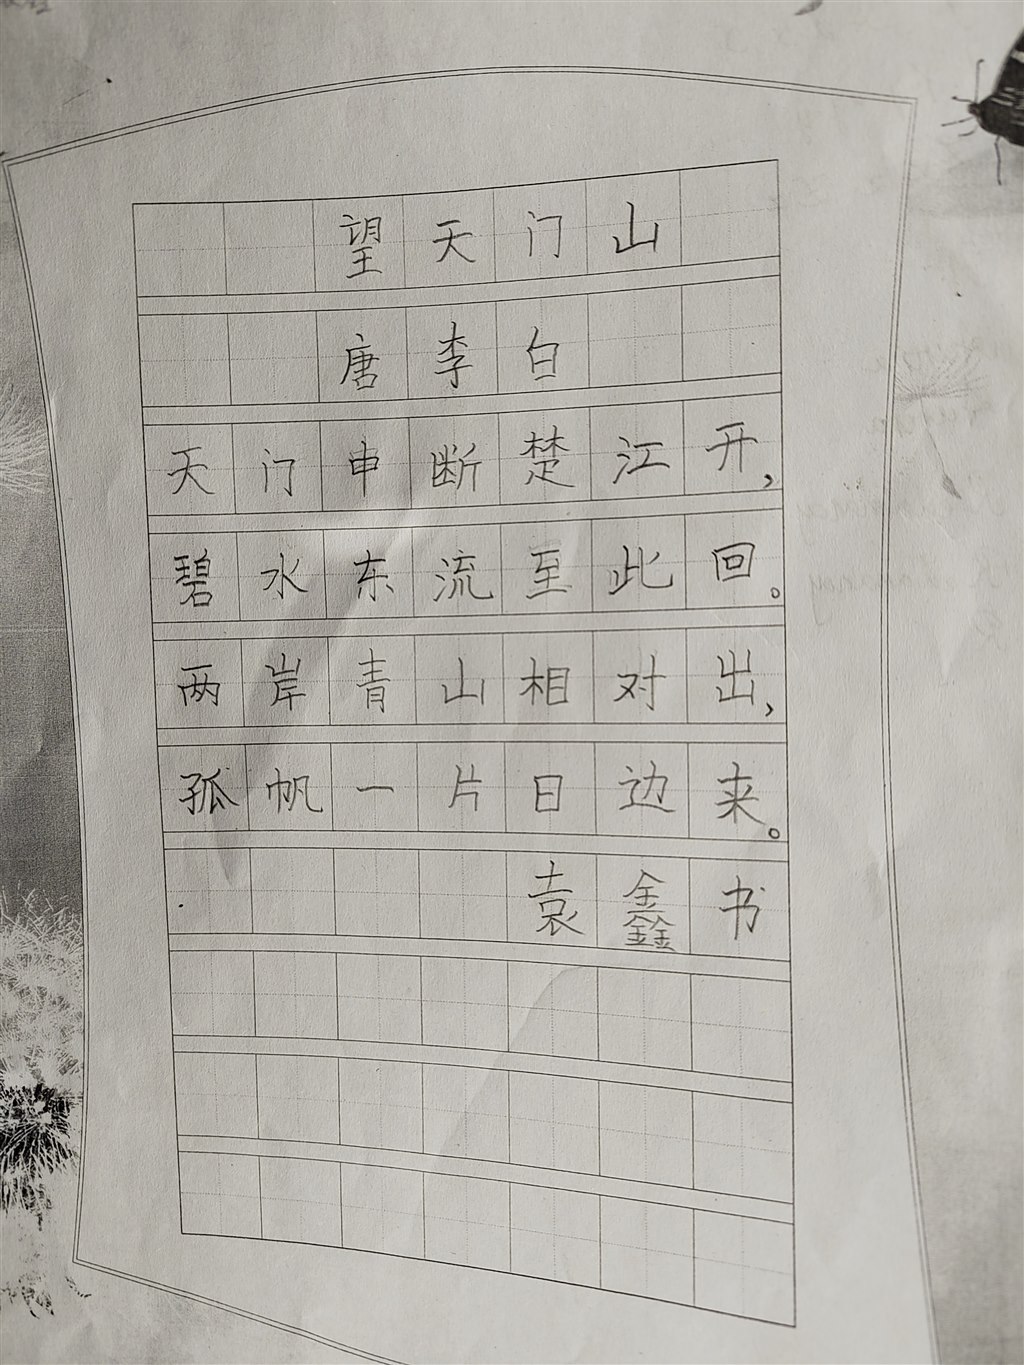 望天门山
唐李白
天门申断楚江开,
碧水东流至此回。
两岸青山相对出,
孤帆一片日边来。
袁鑫书